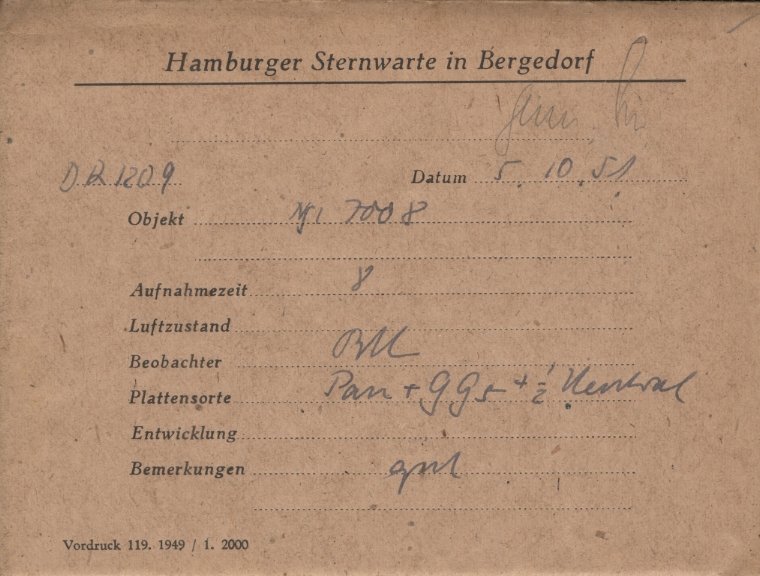 Hamburger Sternwarte in Bergedorf
DR 1209 Datum 5. 10. 51
Objekt 7008
Aufnahmezeit 8
Luftzustand
Beobachter
Plattensorte Pan + GG5 + 1/2 Neutral
Entwicklung
Bemerkungen gut
Vordruck 119. 1949 / 1. 2000